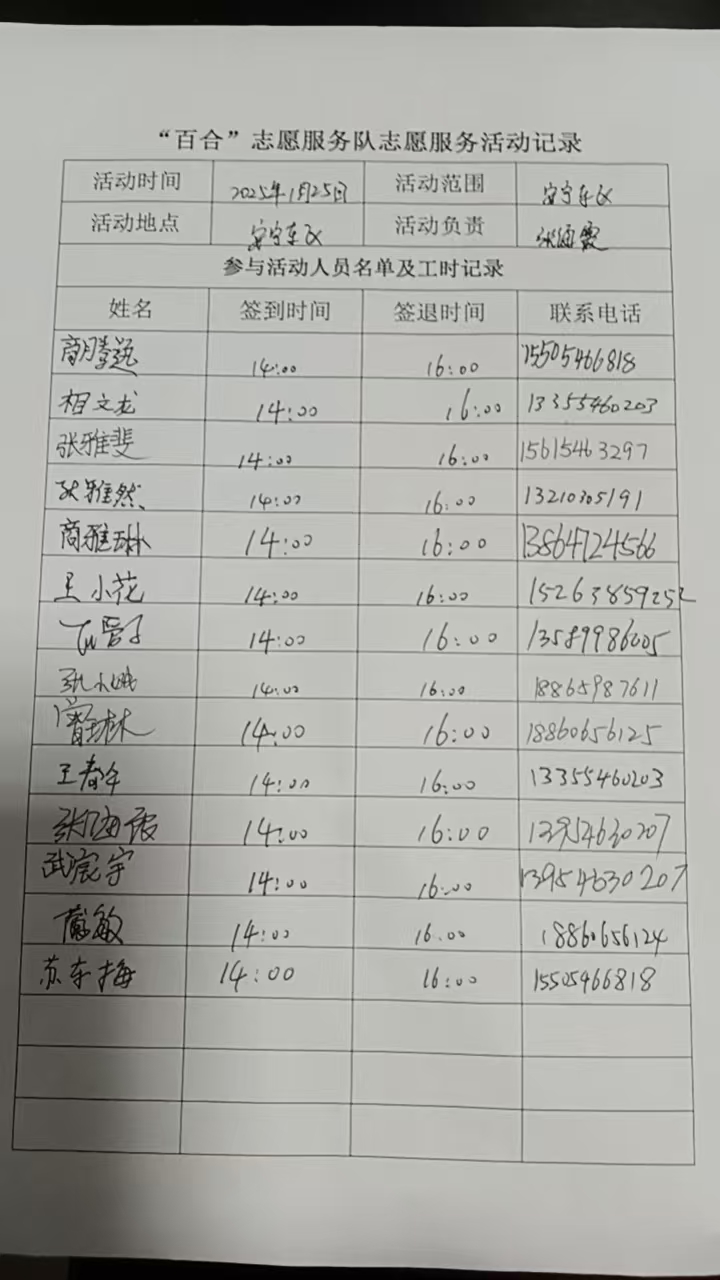 “百合”志愿服务队志愿服务活动记录
活动时间 2025年1月25日 活动范围 安宁东区
活动地点 安宁东区 活动负责 张海霞
参与活动人员名单及工时记录
姓名 签到时间 签退时间 联系电话
商腾远 14:00 16:00 15505466818
相文龙 14:00 16:00 13355460203
张雅斐 14:00 16:00 15615463297
张雅然 14:00 16:00 13210305191
商雅琳 14:00 16:00 13864724566
王小花 14:00 16:00 15263859252
14:00 16:00 13589986005
张小娥 14:00 16:00 18865987611
14:00 16:00 18860656125
王春年 14:00 16:00 13355460203
张海霞 14:00 16:00 13954630207
武宸宇 14:00 16:00 13954630207
敏 14:00 16:00 18860656124
苏东梅 14:00 16:00 15505466818